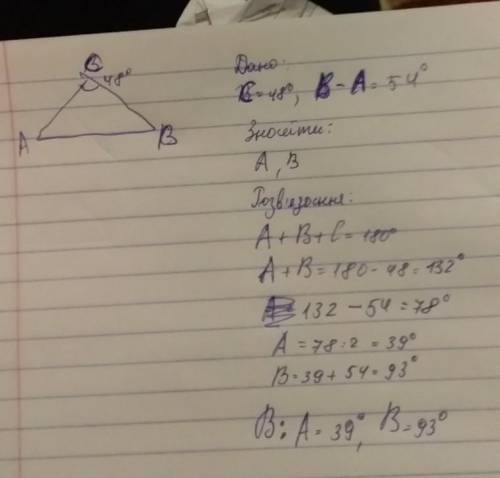 C
48°
A
B
Дано:
C = 48°, B - A = 54°
Знайти:
A, B
Розв'язання:
A + B + C = 180°
A + B = 180 - 48 = 132°
132 - 54 = 78°
A = 78 : 2 = 39°
B = 39 + 54 = 93°
В: A = 39°, B = 93°